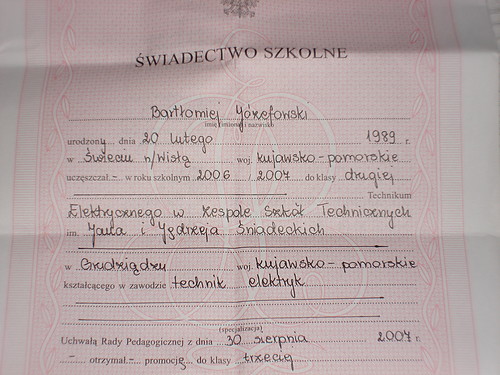 ŚWIADECTWO SZKOLNE
Bartłomiej Józefowski
imię (imiona) i nazwisko
urodzony – dnia 20 lutego 1989 r.
w Świeciu n/Wisłą woj. kujawsko-pomorskie
uczęszczał – w roku szkolnym 2006 / 2007 do klasy drugiej
Technikum
Elektrycznego w Zespole Szkół Technicznych
im. Jana i Jędrzeja Śniadeckich
w Grudziądzu woj. kujawsko-pomorskie
kształcącego w zawodzie technik elektryk
(specjalizacja)
Uchwałą Rady Pedagogicznej z dnia 30 sierpnia 2007 r.
– otrzymał – promocję do klasy trzeciej